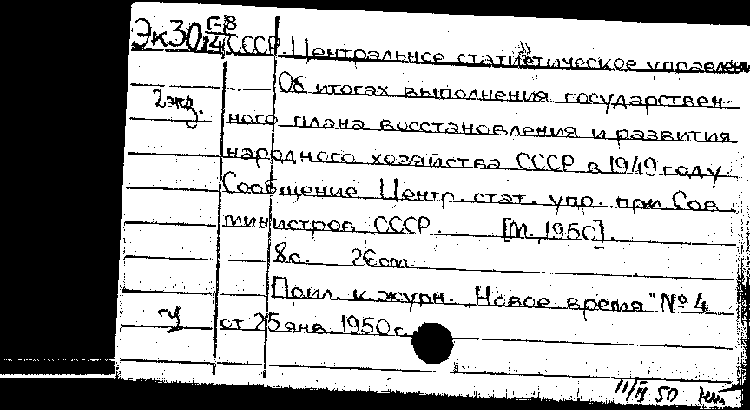 Эк30 Г-8
14 СССР. Центральное статистическое управление
Об итогах выполнения государствен-
2 экз.
ного плана восстановления и развития
народного хозяйства СССР в 1949 году
Сообщение Центр. стат. упр. при Сов.
министров СССР. [М., 1950].
8с. 26см.
Прил. к журн. "Новое время" № 4
от 25 янв. 1950г.
11/II 50